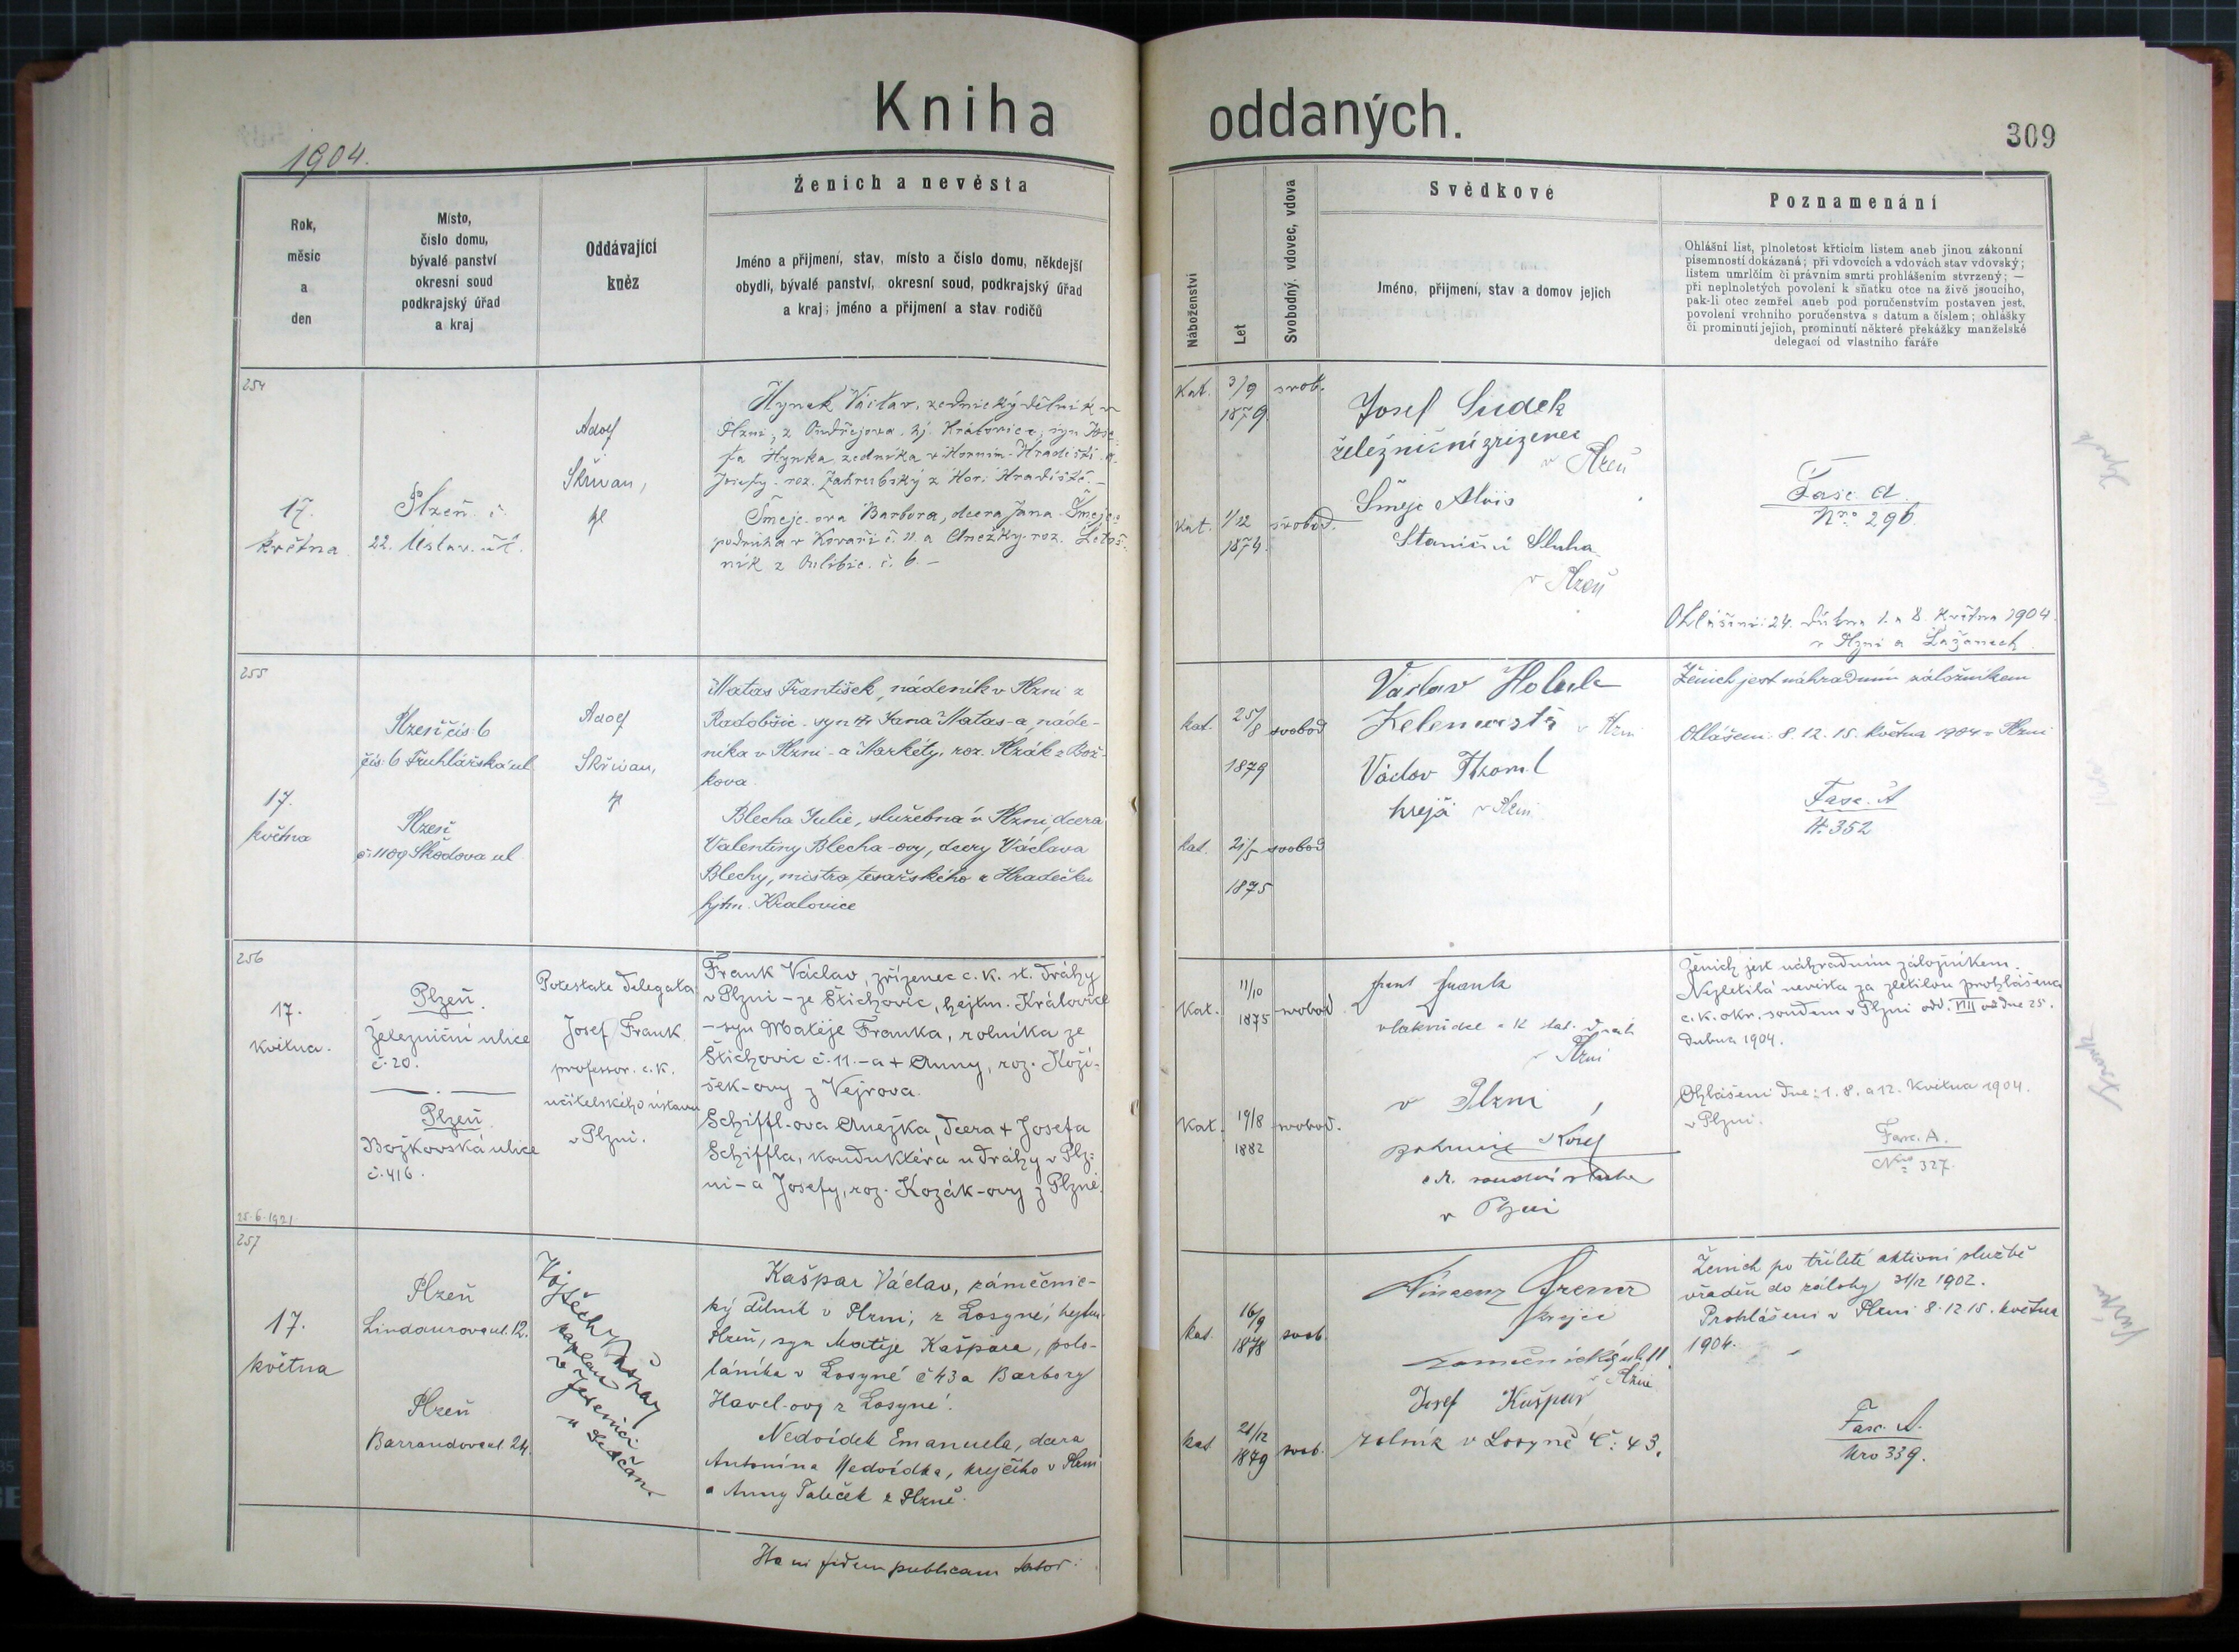 Kniha oddaných.
309
1904.
Rok,
měsíc
a
den
Místo,
číslo domu,
bývalé panství
okresní soud
podkrajský úřad
a kraj
Oddávající
kněz
Ženich a nevěsta
Jméno a příjmení, stav, místo a číslo domu, někdejší
obydlí, bývalé panství, okresní soud, podkrajský úřad
a kraj; jméno a příjmení a stav rodičů
Náboženství
Let
Svobodný, vdovec, vdova
Svědkové
Jméno, příjmení, stav a domov jejich
Poznamenání
Ohlášní list, plnoletost křticím listem aneb jinou zákonní
písemností dokázaná; při vdovcích a vdovách stav vdovský;
listem umrlčím či právním smrti prohlášením stvrzený; —
při neplnoletých povolení k sňatku otce na živě jsoucího,
pak-li otec zemřel aneb pod poručenstvím postaven jest,
povolení vrchního poručenstva s datum a číslem; ohlášky
či prominutí jejich, prominutí některé překážky manželské
delegací od vlastního faráře
254
17.
května
Plzeň č.
22. Ústav. ul.
Adolf
Skřivan,
Hynek Václav, zednický dělník v
Plzni, z Ondřejova, hj. Kralovice, syn Jose-
fa Hynka, zedníka v Horním-Hradišti a
Josefy roz. Zahrubský z Hor. Hradiště.—
Smeje-ova Barbora, dcera Jana Smeje
podruha v Kovaři č. 11. a Anežky roz. Letoš-
ník z č. 6.—
Kat.
3/9
1879
svob.
Kat.
1/12
1874.
svobod.
Josef Sudek
železniční zřizenec
v Plzeň
Smeje Alois
Staniční Sluha
v Plzeň
Fasc. A.
Nro. 296.
Ohlášení: 24. dubna 1. a 8. května 1904
v Plzni a Lažanech.
255
17.
května
Plzeň čís 6
čís. 6 Truhlářská ul.
Plzeň
č. 1109 Škodova ul.
Adolf
Skřivan,
Matas František, nádeník v Plzni z
Radobčic - syn Jana Matas-a, náde-
níka v Plzni - a Markéty, roz. Plzák z Bož-
kova.
Blecha Julie, služebná v Plzni, dcera
Valentiny Blecha-ovy, dcery Václava
Blechy, mistra tesařského z Hradečku
hjtm. Kralovice
kat.
25/8
1879
svobod
kat.
21/5
1875
svobod
Václav
v Plzni
Václav
krejčí v Plzni
Ženich jest náhradním záložníkem
Ohlášení: 8. 12. 15. května 1904 v Plzni
Fasc. A
N: 352
256
17.
května.
Plzeň.
Železniční ulice
č. 20.
Plzeň.
Božkovská ulice
č. 416.
25.6.1921
Potestate delegata
Josef Frank
professor c. k.
učitelského ústavu
v Plzni.
Frank Václav, zřízenec c. k. st. dráhy
v Plzni - ze Štichovic, hejtm. Královice
- syn Matěje Franka, rolníka ze
Štichovic č. 11. - a + Anny, roz. Koží-
šek-ovy z Vejrova.
Schiffl-ova Anežka, dcera + Josefa
Schiffla, konduktéra u dráhy v Plz-
ni - a Josefy, roz. Kozák-ovy z Plzně.
Kat.
11/10
1875
svobod.
Kat.
19/8
1882
svobod.
Frank
v Plzni
v Plzni
Josef
c. k. soudní sluha
v Plzni
Ženich jest náhradním záložníkem.
Nezletilá nevěsta za zletilou prohlášena
c. k. okr. soudem v Plzni odd. VIII ode dne 25.
dubna 1904.
Ohlášení dne: 1. 8. a 12. května 1904.
v Plzni.
Fasc. A.
Nro 327.
257
17.
května
Plzeň
Lindaurova ul. 12.
Plzeň
Barrandova ul. 24.
Vojtěch Kašpar
kaplan
ze Jesenici
u Sedlčan
Kašpar Václav, zámečnic-
ký dělník v Plzni, z Losyné, hejtm.
Plzeň, syn Matěje Kašpara, polo-
láníka v Losyné č 43 a Barbory
Havel-ovy z Losyné.
Nedvídek Emanuela, dcera
Antonína Nedvídka, krejčího v Plzni
a Anny Taliček z Plzně.
kat.
16/9
1878
svob.
kat
21/12
1879
svob.
krejčí
Zámečnická ul. 11.
v Plzni
Josef Kašpar
rolník v Losyně Č: 43.
Ženich po tříleté aktivní službě
vřaděn do zálohy 31/12 1902.
Prohlášeni v Plzni 8. 12 15. května
1904.
Fasc. A.
Nro 339.
Ita in fidem publicam testor: